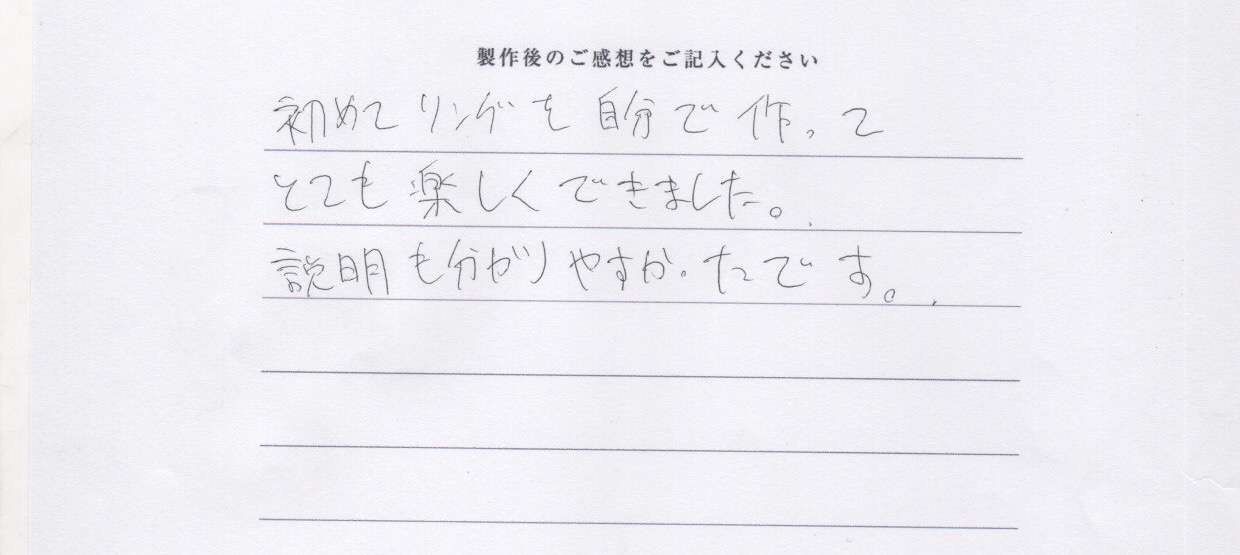 製作後のご感想をご記入ください
初めてリングを自分で作って
とても楽しくできました。
説明も分かりやすかったです。